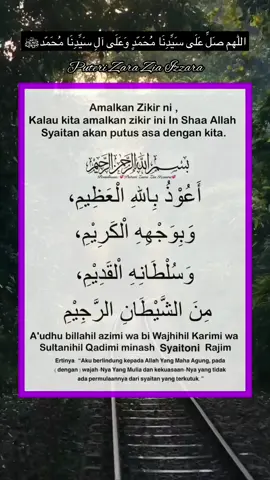 اللهم صل على سيدنا محمد وعلى آل سيدنا محمد ﷺ
Puteri Zara Zia Iezara
Amalkan Zikir ni ,
Kalau kita amalkan zikir ini In Shaa Allah
Syaitan akan putus asa dengan kita.
بسم الله الرحمن الرحيم
أَعُوْذُ بِاللهِ الْعَظِيمِ،
وَبِوَجْهِهِ الْكَرِيْمِ،
وَسُلْطَانِهِ الْقَدِيْمِ،
مِنَ الشَّيْطَانِ الرَّجِيْمِ
A'udhu billahil azimi wa bi Wajhihil Karimi wa
Sultanihil Qadimi minash Syaitoni Rajim
Ertinya "Aku berlindung kepada Allah Yang Maha Agung, pada
( dengan ) wajah-Nya Yang Mulia dan kekuasaan-Nya yang tidak
ada permulaannya dari syaitan yang terkutuk. "